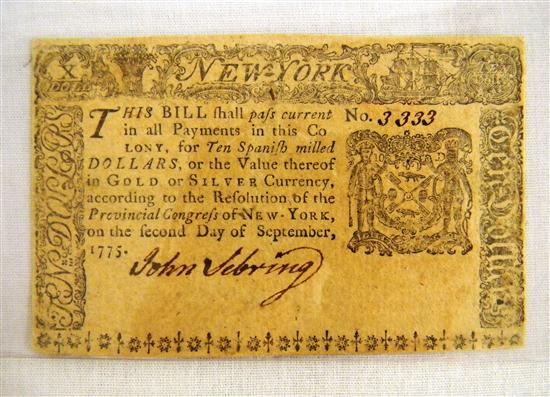 X
NEW-YORK
THIS BILL ſhall paſs current
in all Payments in this Co
LONY, for Ten Spaniſh milled
DOLLARS, or the Value thereof
in GOLD or SILVER Currency,
according to the Reſolution of the
Provincial Congreſs of NEW-YORK,
on the ſecond Day of September,
1775.
John Sebring
No. 3333
Ten Dollars